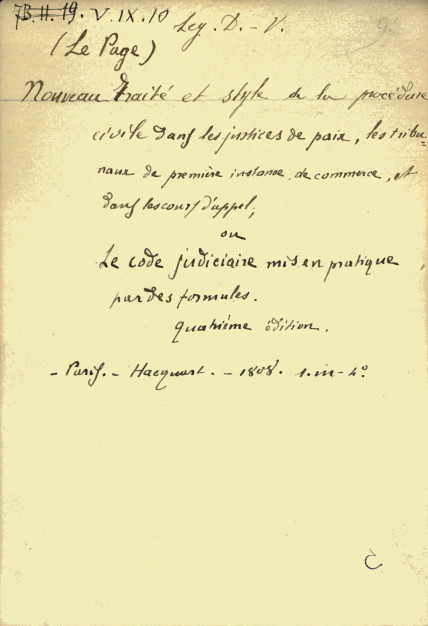 7B.II.19. V.IX.10
Leg. D. - V.
(Le Page)
Nouveau traité et style de la procédure
civile dans les justices de paix, les tribu=
naux de première instance, de commerce, et
dans les cours d'appel;
ou
Le code judiciaire mis en pratique
par des formules.
Quatrième édition.
- Paris. - Hacquart. - 1808. 1. in-4°